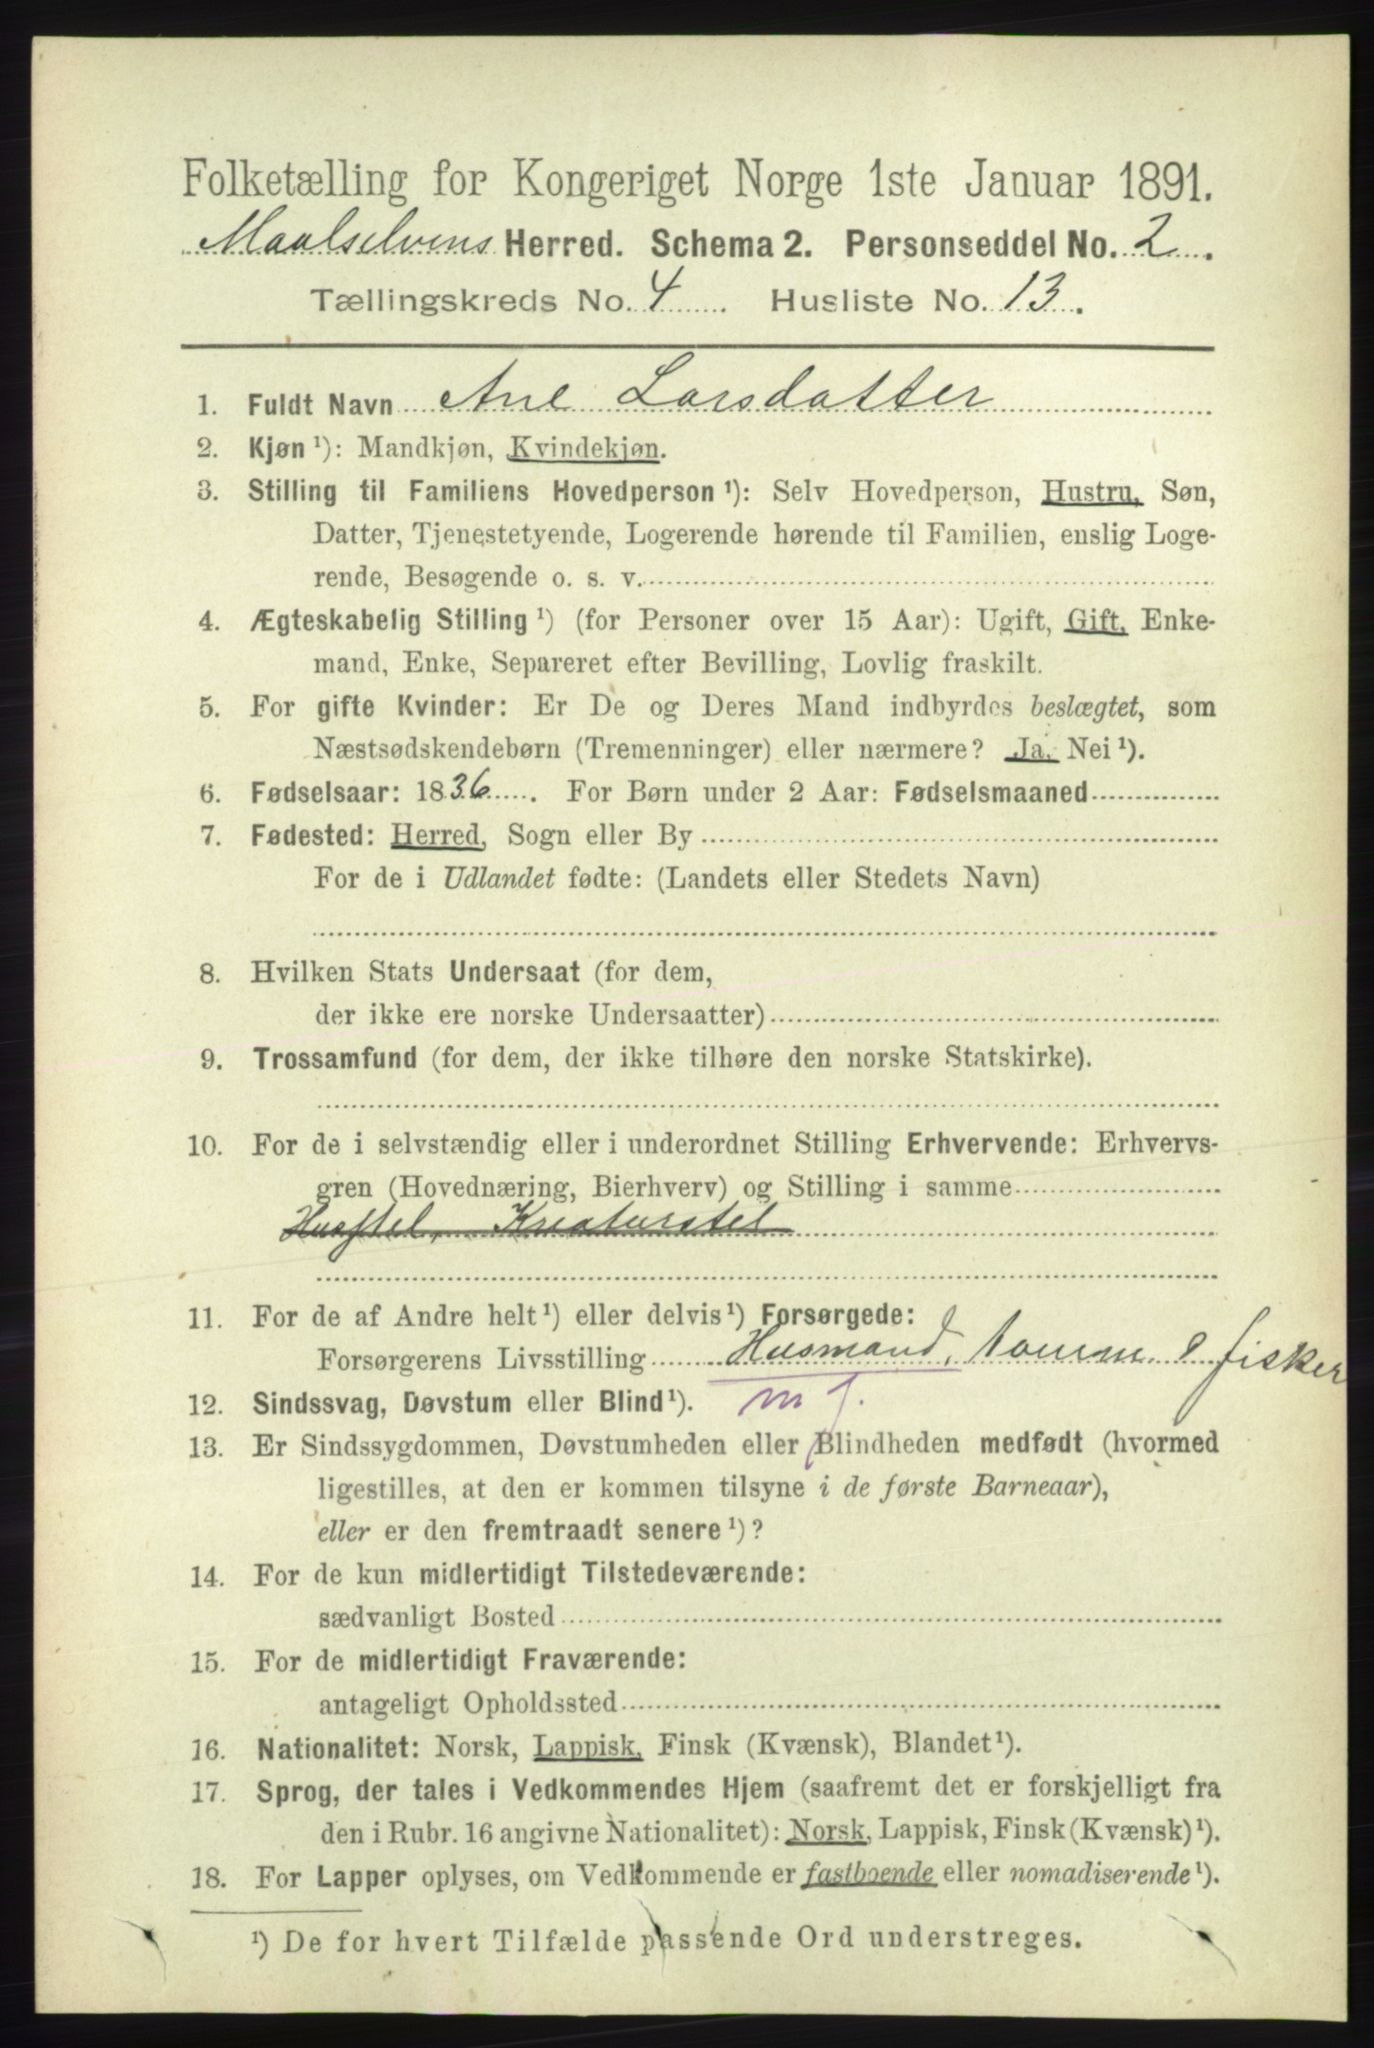 Folketælling for Kongeriget Norge 1ste Januar 1891.
Maalselvens Herred. Schema 2. Personseddel No. 2.
Tællingskreds No. 4. Husliste No. 13.
1. Fuldt Navn Ane Larsdatter
2. Kjøn ¹): Mandkjøn, Kvindekjøn.
3. Stilling til Familiens Hovedperson ¹): Selv Hovedperson, Hustru, Søn,
Datter, Tjenestetyende, Logerende hørende til Familien, enslig Loge-
rende, Besøgende o. s. v.
4. Ægteskabelig Stilling ¹) (for Personer over 15 Aar): Ugift, Gift, Enke-
mand, Enke, Separeret efter Bevilling, Lovlig fraskilt.
5. For gifte Kvinder: Er De og Deres Mand indbyrdes beslægtet, som
Næstsødskendebørn (Tremenninger) eller nærmere? Ja, Nei ¹).
6. Fødselsaar: 1836. For Børn under 2 Aar: Fødselsmaaned
7. Fødested: Herred, Sogn eller By
For de i Udlandet fødte: (Landets eller Stedets Navn)
8. Hvilken Stats Undersaat (for dem,
der ikke ere norske Undersaatter)
9. Trossamfund (for dem, der ikke tilhøre den norske Statskirke).
10. For de i selvstændig eller i underordnet Stilling Erhvervende: Erhvervs-
gren (Hovednæring, Bierhverv) og Stilling i samme
Husstel, Kreaturstel
11. For de af Andre helt ¹) eller delvis ¹) Forsørgede:
Forsørgerens Livsstilling Husmand, fisker
12. Sindssvag, Døvstum eller Blind ¹). m J.
13. Er Sindssygdommen, Døvstumheden eller Blindheden medfødt (hvormed
ligestilles, at den er kommen tilsyne i de første Barneaar),
eller er den fremtraadt senere ¹)?
14. For de kun midlertidigt Tilstedeværende:
sædvanligt Bosted
15. For de midlertidigt Fraværende:
antageligt Opholdssted
16. Nationalitet: Norsk, Lappisk, Finsk (Kvænsk), Blandet ¹).
17. Sprog, der tales i Vedkommendes Hjem (saafremt det er forskjelligt fra
den i Rubr. 16 angivne Nationalitet): Norsk, Lappisk, Finsk (Kvænsk) ¹).
18. For Lapper oplyses, om Vedkommende er fastboende eller nomadiserende ¹).
¹) De for hvert Tilfælde passende Ord understreges.